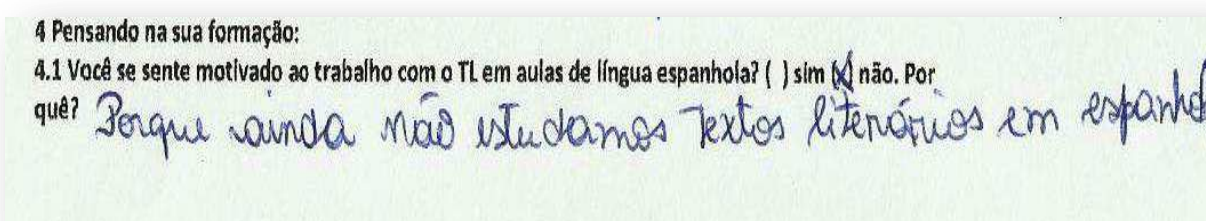 4 Pensando na sua formação:
4.1 Você se sente motivado ao trabalho com o TL em aulas de língua espanhola? ( ) sim (x) não. Por
quê? Porque ainda não estudamos Textos literários em espanhol